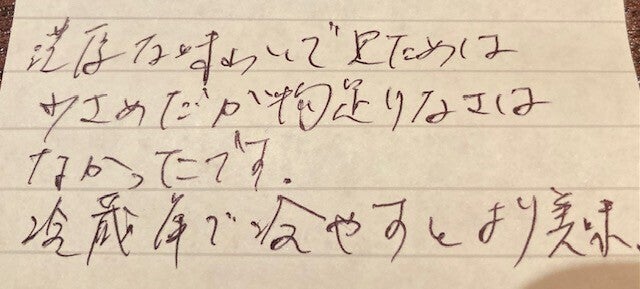 濃厚な味わいで見ためは
小さめだが物足りなさは
なかったです。
冷蔵庫で冷やすとより美味。